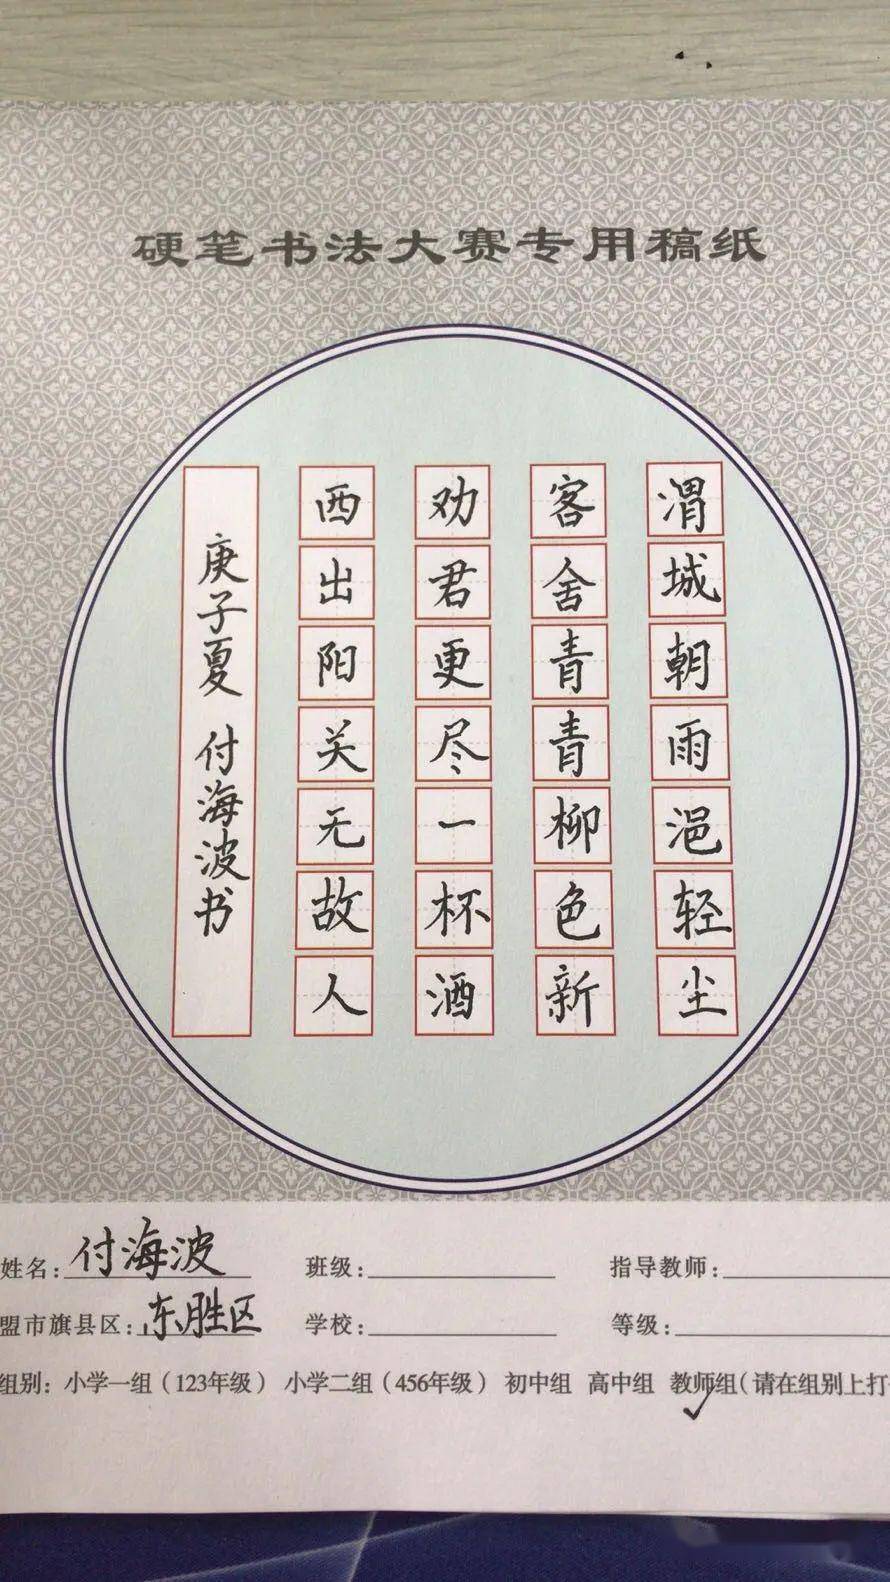 硬笔书法大赛专用稿纸
渭城朝雨浥轻尘
客舍青青柳色新
劝君更尽一杯酒
西出阳关无故人
庚子夏 付海波书
姓名:付海波 班级: 指导教师:
盟市旗县区:东胜区 学校: 等级:
组别: 小学一组(123年级) 小学二组(456年级) 初中组 高中组 教师组(请在组别上打